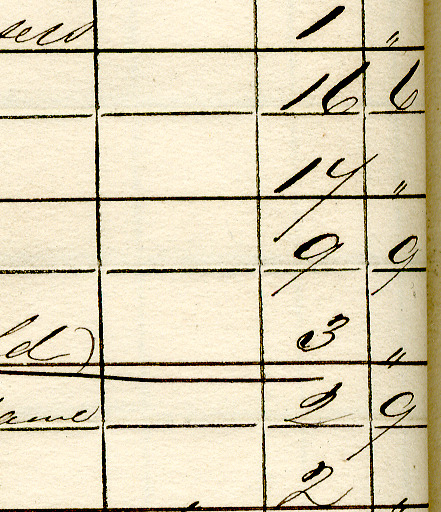 1 "
16 6
14 "
9 9
ld) 3 "
ame 2 9
2 "